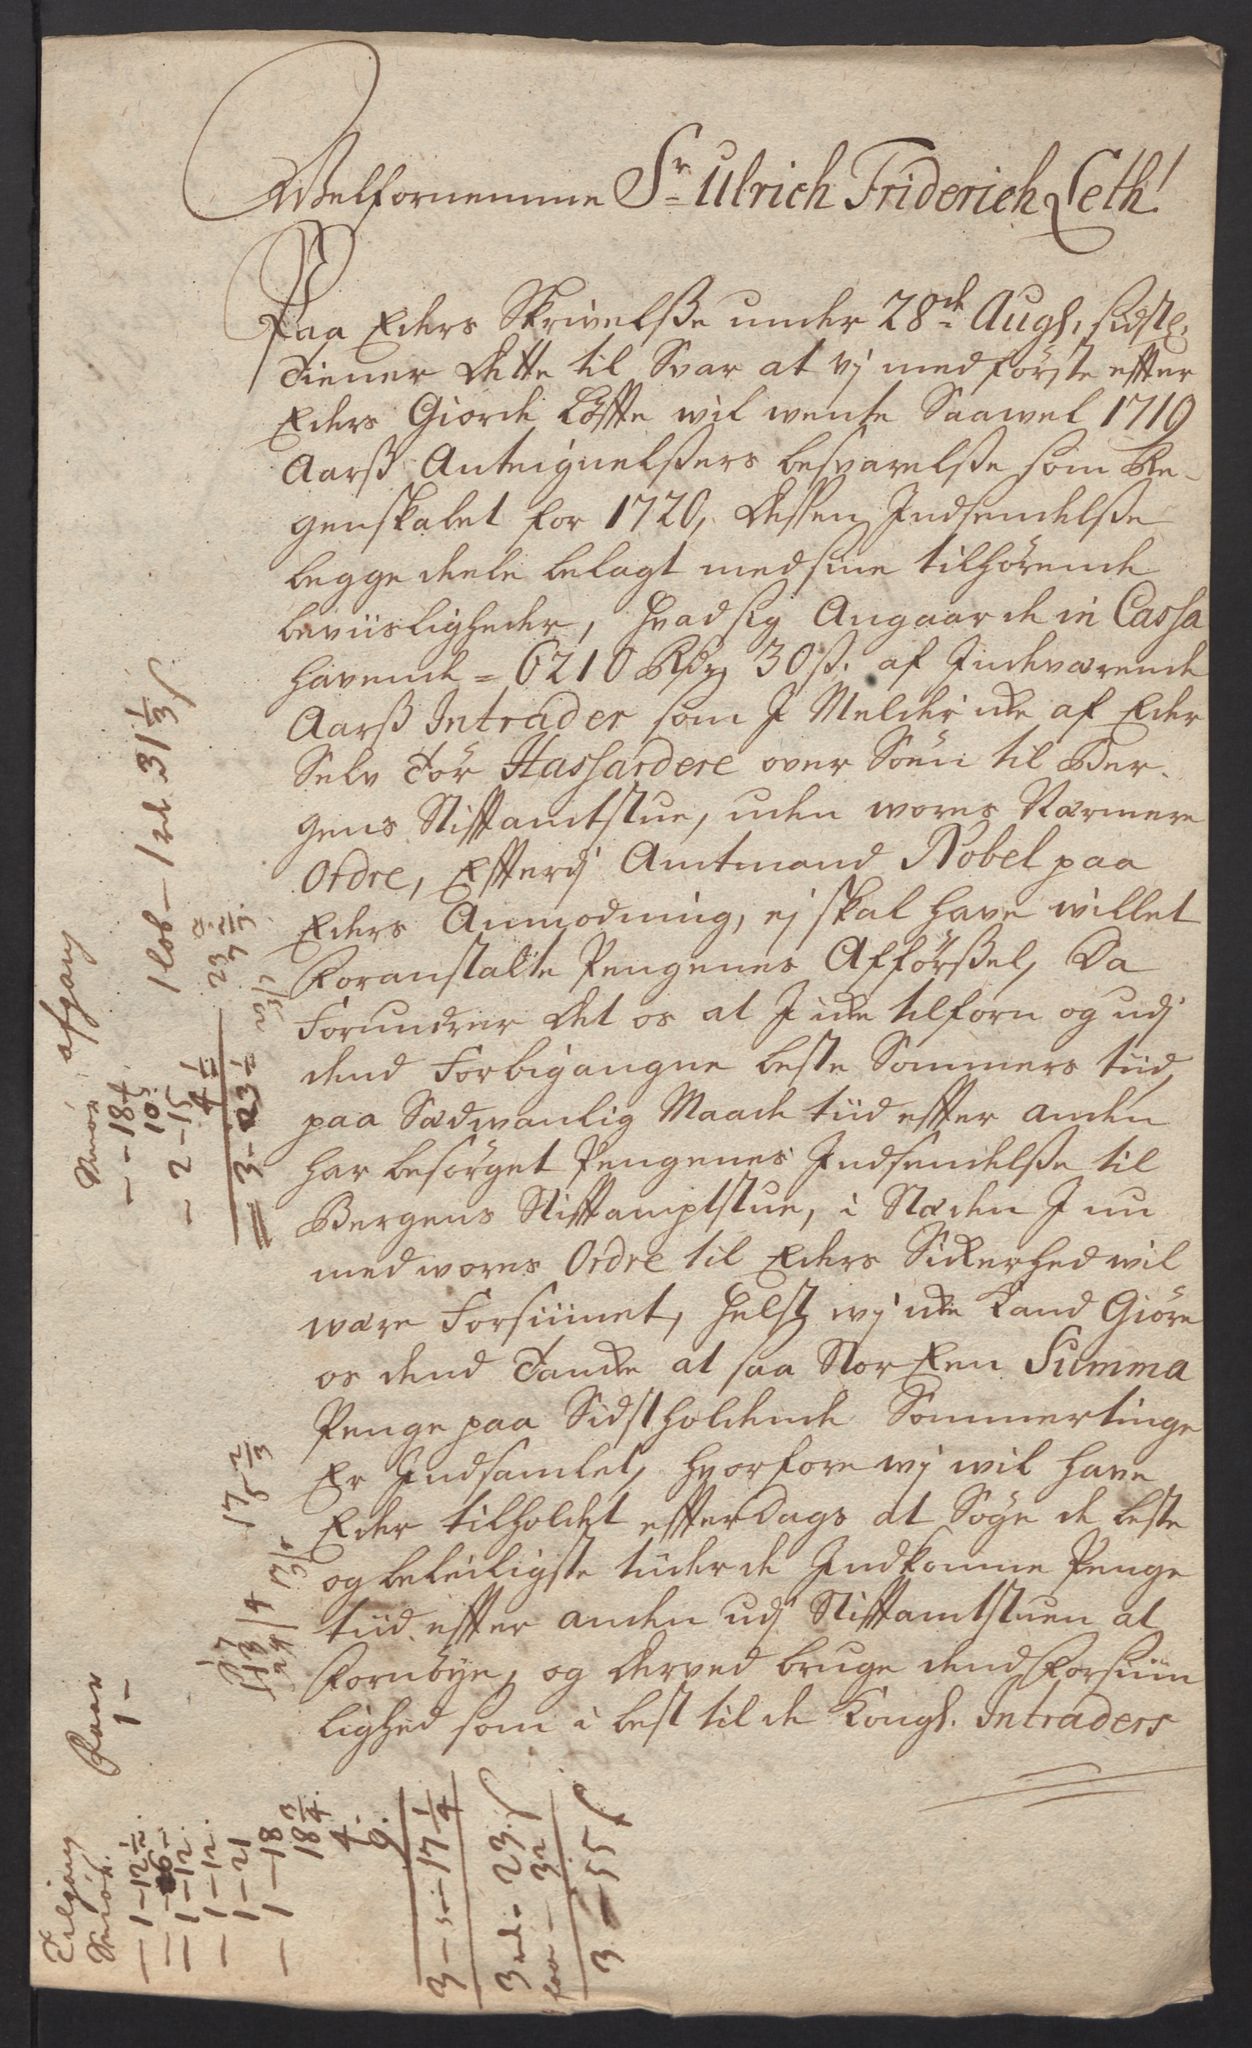 Welfornemme Sr Ulrich Friderich Leth!
Paa Eders Skrivelsse under 28de Augs. sidste,
Tiener dette til Svar at vj med förste effter
Eders Giorde Löffte wil wente Saawel 1719
Aarss Anteignelssers besvarelsse som Re-
genskabet for 1720, dessen Indsendelsse
begge deele belagt med sine tilhörende
beviisligheder, hvad sig Angaar de in Cassa
havende = 6210 Rdr 30 ss. af Indeværende
Aarss Intrader som I Melder icke af Eder
Selv tör Hassardere over Söen til Ber-
gens Stifftamtstue, uden wores Nærmere
Ordre, Effterdj Amtmand Nobel paa
Eders Anmodning, ej skal have willet
Foranstalte Pengenes Afförssel, Da
Forundrer det os at I icke tilforn og udj
dend Forbigangne beste Sommers tiid,
paa Sædwanlig Maade tiid effter anden
har besörget Pengenes Indsendelsse til
Bergens Stifftamptstue, i Stæden I nu
med wores Ordre til Eders Sickerhed wil
være Forsiunet, helst wj icke kand Giöre
os dend Tancke at saa Stor Een Summa
Penge paa Sidstholdende Sommertinge
Er Indsamlet, hvorfore wj wil have
Eder tilholdet effterdags at Söge de beste
og beleiligste tiider de Indkomne Penge
tiid effter anden udj Stifftamtstuen at
Fornöye, og derved bruge dend Forsiun
lighed som i best til de Kongl. Intraders
afgang
1 lob - 1 rd. 31 1/3 s
- - 18 4
10 5
- 2 - 15
4 1/2
3 - 23 1/2
23
7
17
6 2/3
Tilgang
Paar
1 -
- 1 - 12 1/2
- 1 - 12
- 1 - 12
1 - 21
- 1 - 18
18 3/4
4.
9.
3 - - 17 1/4
3 rd - 23. s
- 32 s
3 - 55 s